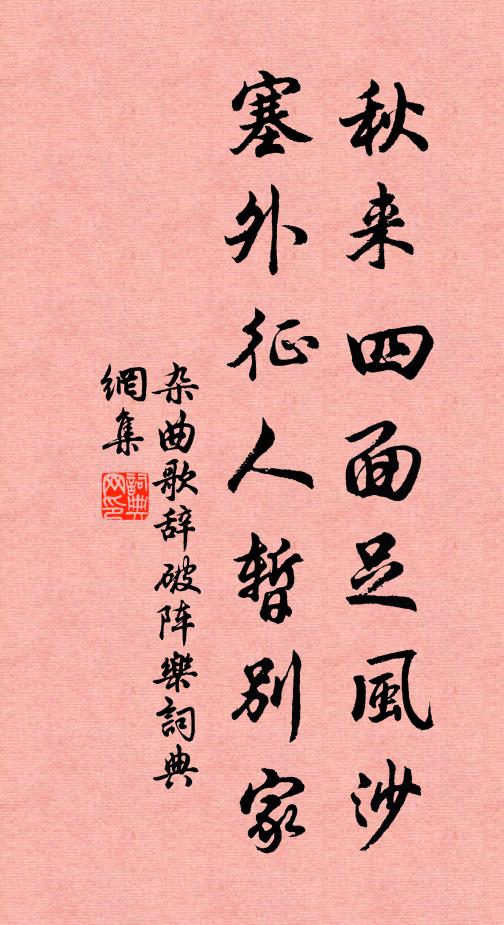 秋来四面足風沙
塞外征人暫別家
杂曲歌辞破阵樂詞典
網集
詞典
网印